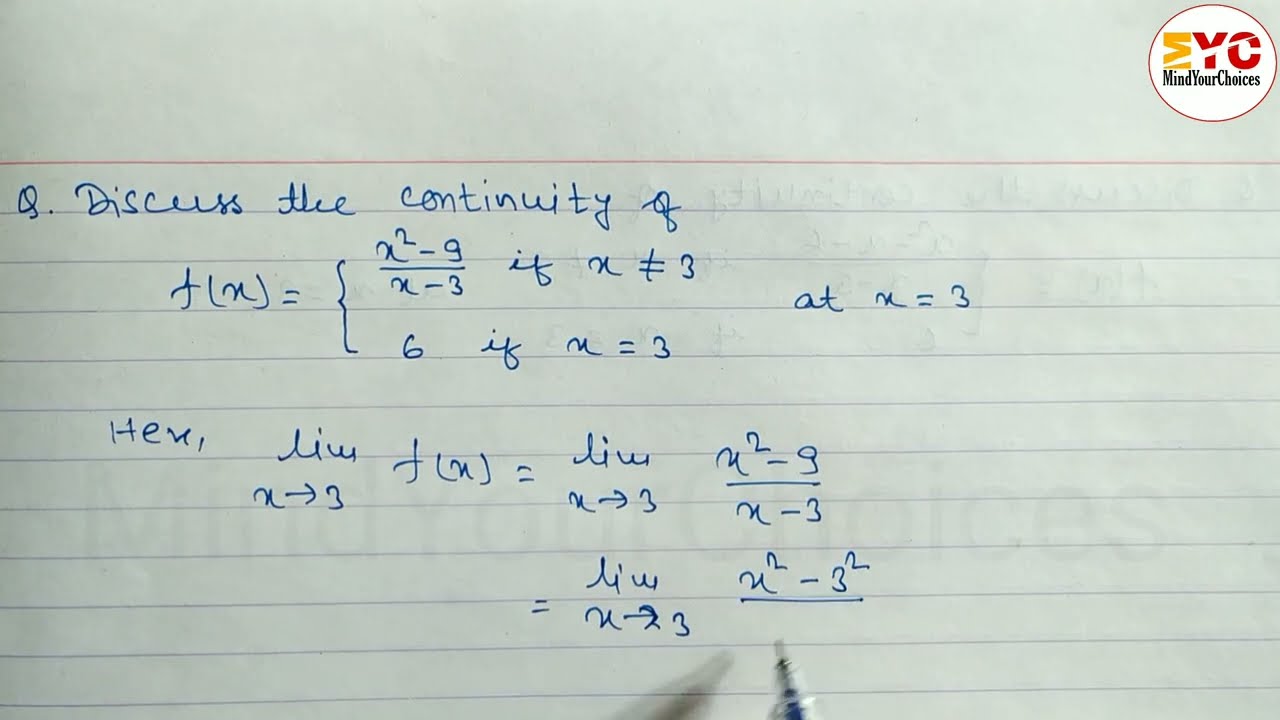 MYC
MindYourChoices
Q. Discuss the continuity of
f(x) = { x² - 9 / x - 3 if x ≠ 3
at x = 3
6 if x = 3
Here, lim x→3 f(x) = lim x→3 x² - 9 / x - 3
= lim x→3 x² - 3²
Mind Your Choices